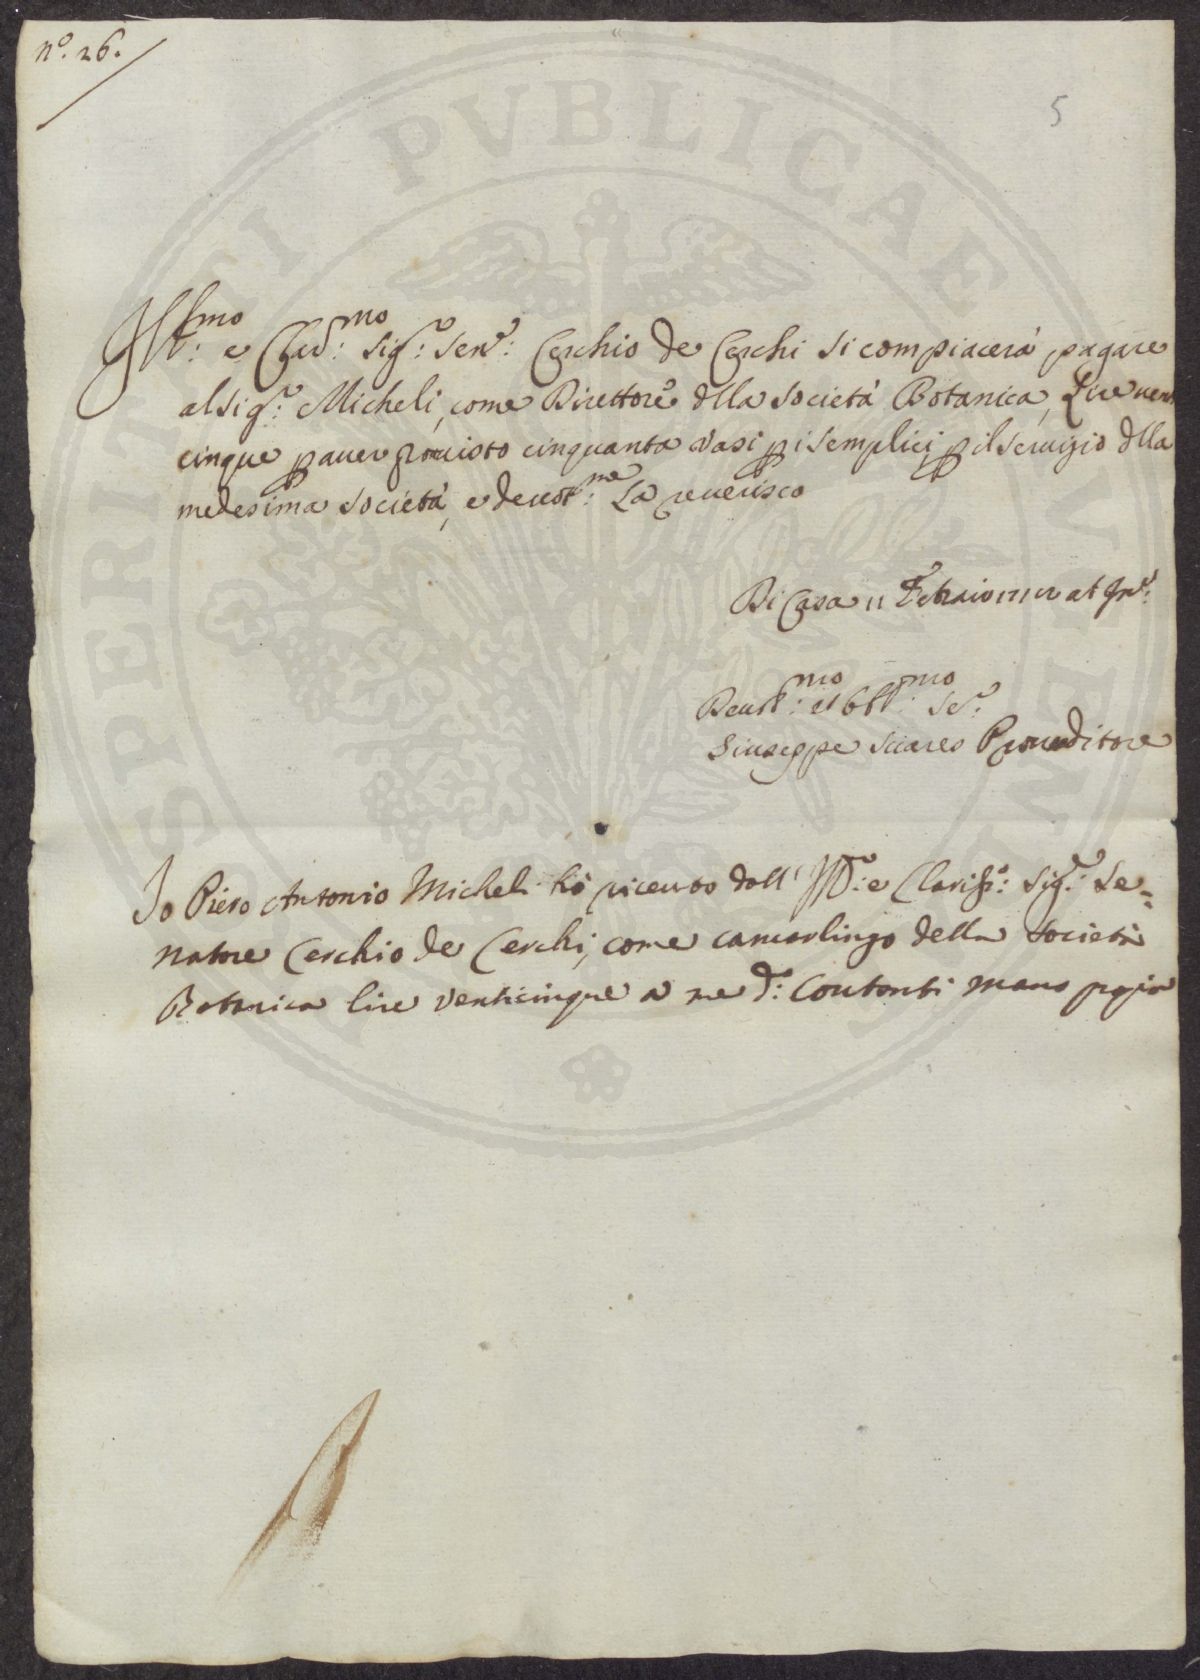 nº. 26.
5
Ill.mo e Clar.mo Sig.r Sen.re Cerchio de Cerchi si compiacerà pagare
al Sig.r Micheli, come Direttore della Società Botanica, Lire venti
cinque p auer prouisto cinquanta vasi p i semplici p il seruizio della
medesima Società, e deuot.me La reuerisco
Di Casa 11 Febraio at Inc.e
Deuot.mo et Obb.mo Se.re
Giuseppe Suares Prouueditore
Io Piero Antonio Micheli hò riceuto dall' Ill.º e Clariss.º Sig.re Se=
natore Cerchio de Cerchi, come camarlingo della Società
Botanica lire venticinque a me d.º Contanti mano ppia
PROSPERITATI PVBLICAE